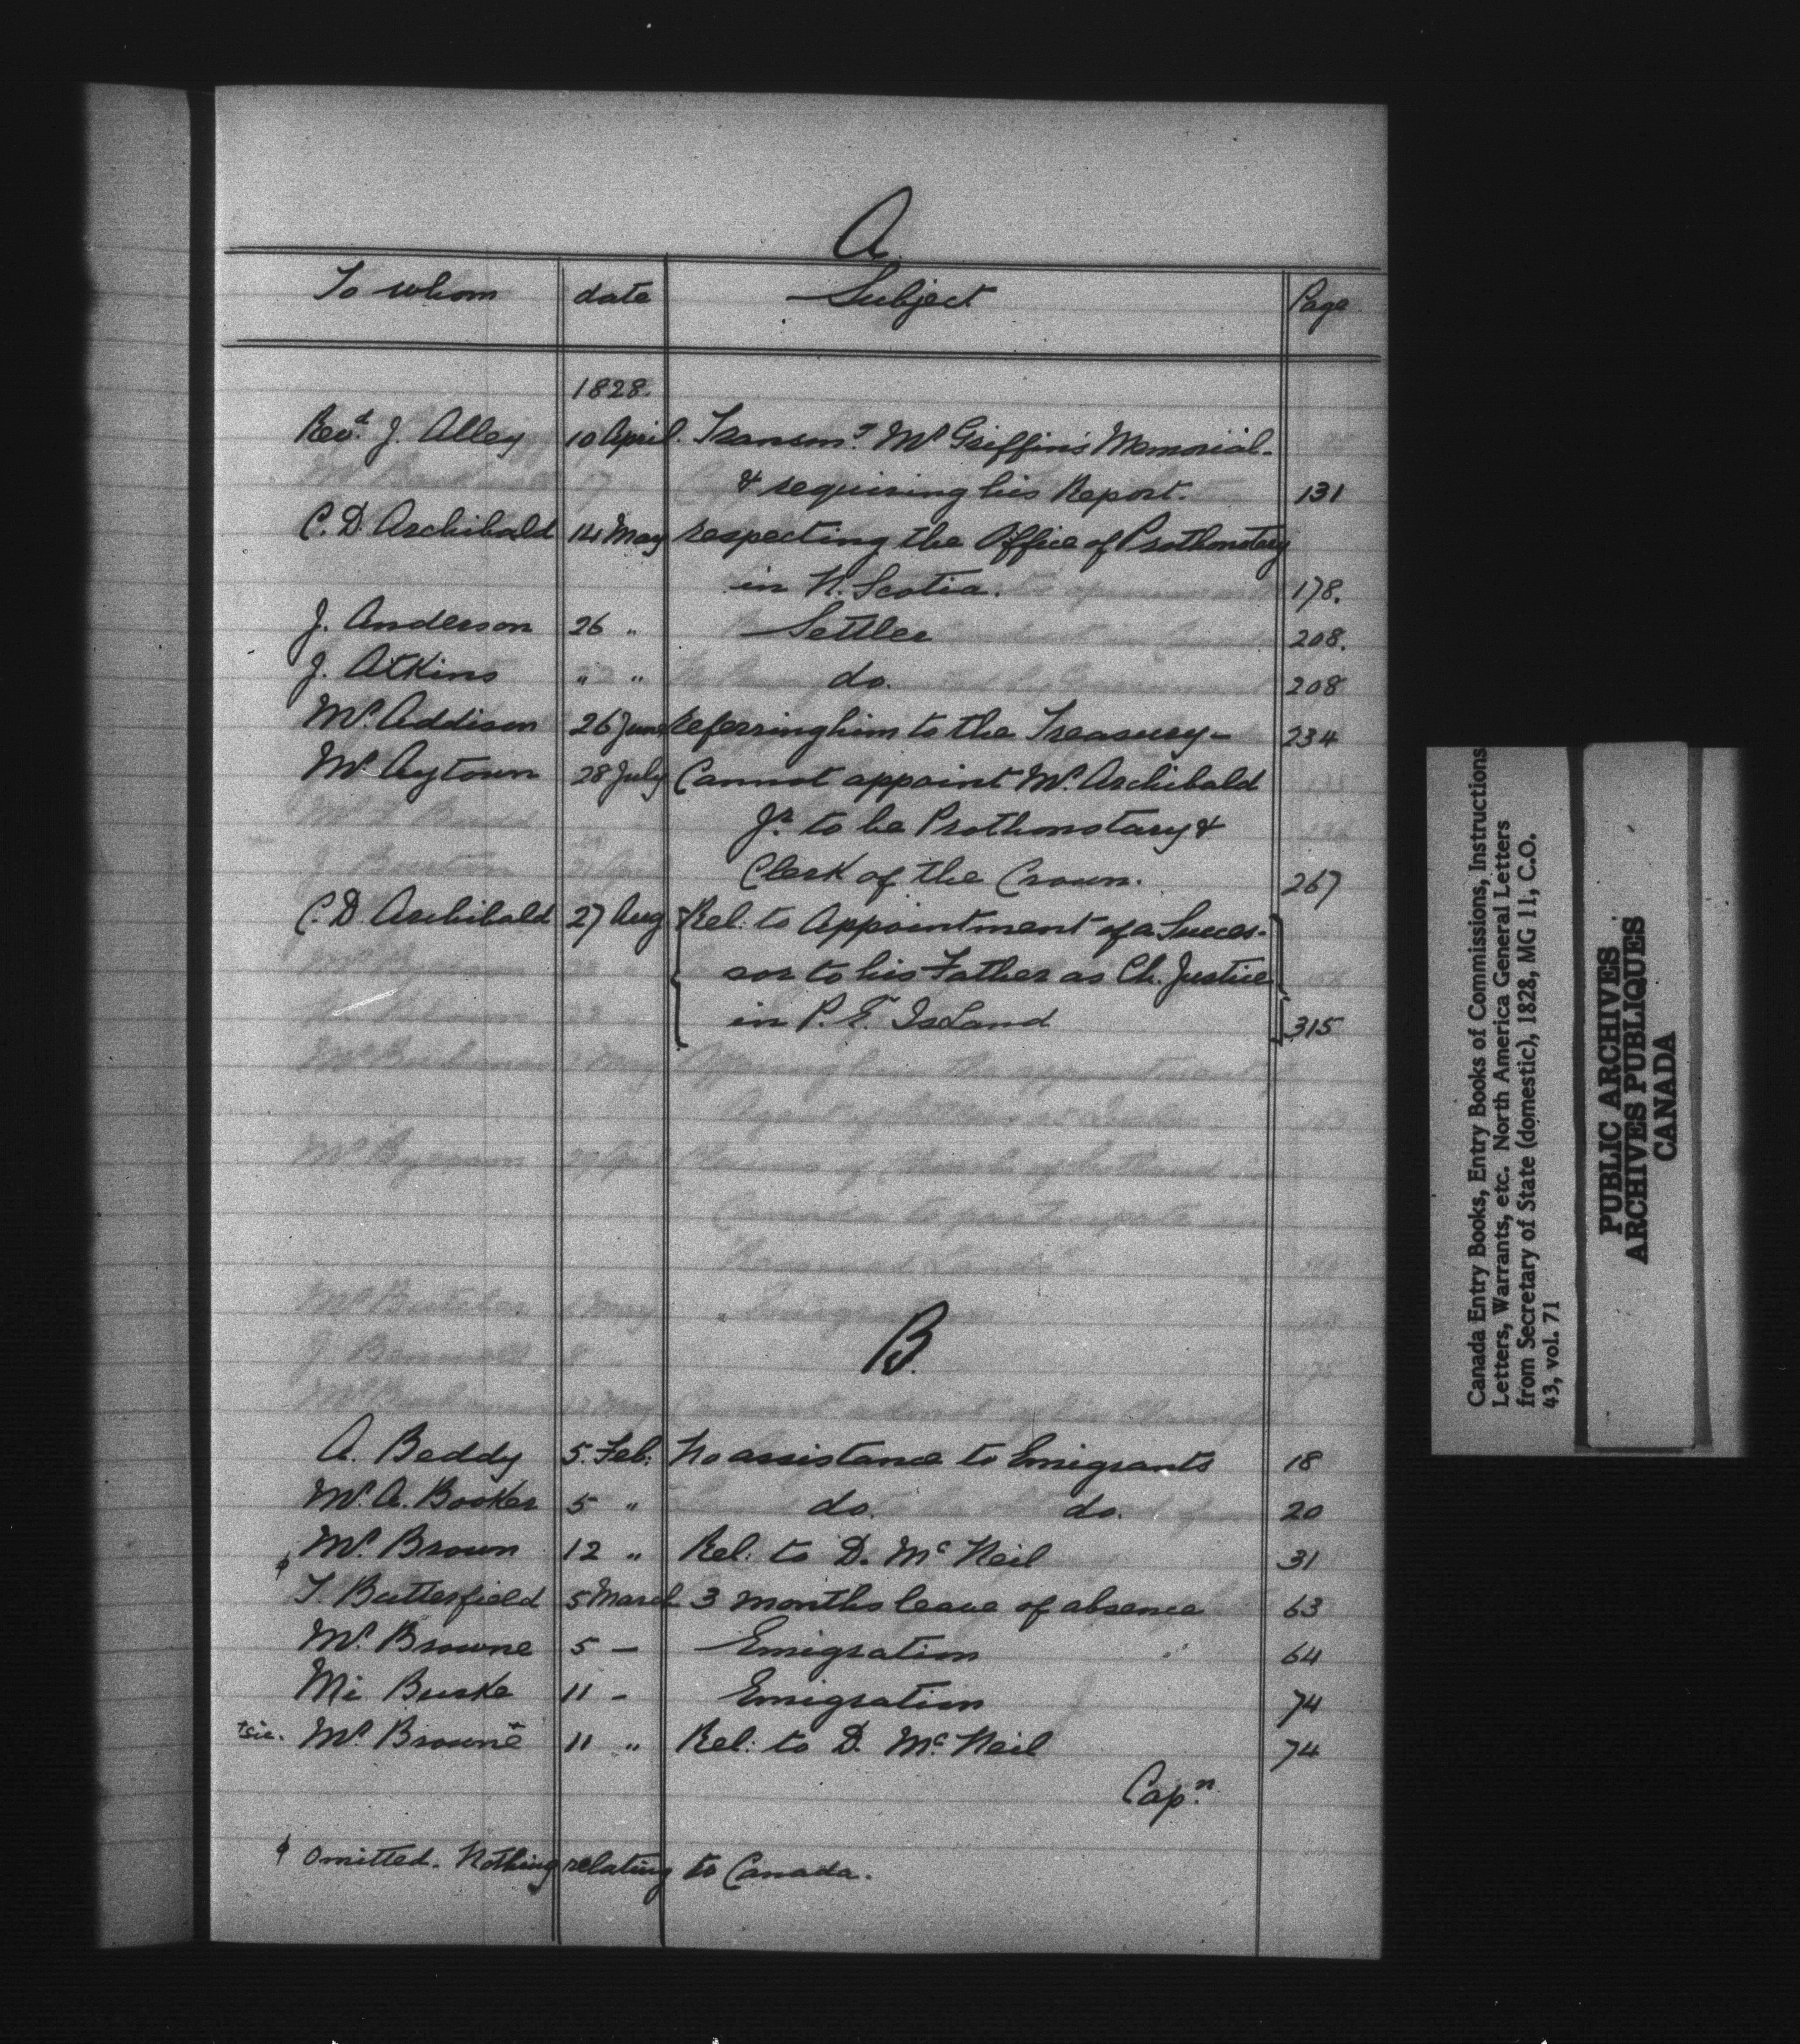 A.
To whom date Subject Page
1828.
Revd. J. Alley 10 April. Transmg. Mr Griffin's Memorial-
& requiring his Report. 131
C. D. Archibald 14 May respecting the Office of Prothonotary
in N. Scotia. 178.
J. Anderson 26 " Settler 208.
J. Atkins " " do. 208
Mr. Addison 26 June referring him to the Treasury- 234
Mr. Aytoun 28 July Cannot appoint Mr. Archibald
Jr. to be Prothonotary &
Clerk of the Crown. 267
C. D. Archibald 27 Aug Rel: to Appointment of a Succes-
sor to his Father as Ch. Justice
in P. E. Island 315
B.
A. Beddy 5. Feb: No assistance to Emigrants 18
Mr. A. Booker 5 " do. do. 20
Mr. Brown 12 " Rel: to D. Mc Neil 31
φ T. Butterfield 5 March 3 months leave of absence 63
Mr. Browne 5 - Emigration 64
Mi Burke 11 - Emigration 74
+sic. Mr. Browne+ 11 " Rel: to D. Mc. Neil 74
Capn.
φ Omitted. Nothing relating to Canada.
Canada Entry Books, Entry Books of Commissions, Instructions
Letters, Warrants, etc. North America General Letters
from Secretary of State (domestic), 1828, MG 11, C.O.
43, vol. 71
PUBLIC ARCHIVES
ARCHIVES PUBLIQUES
CANADA